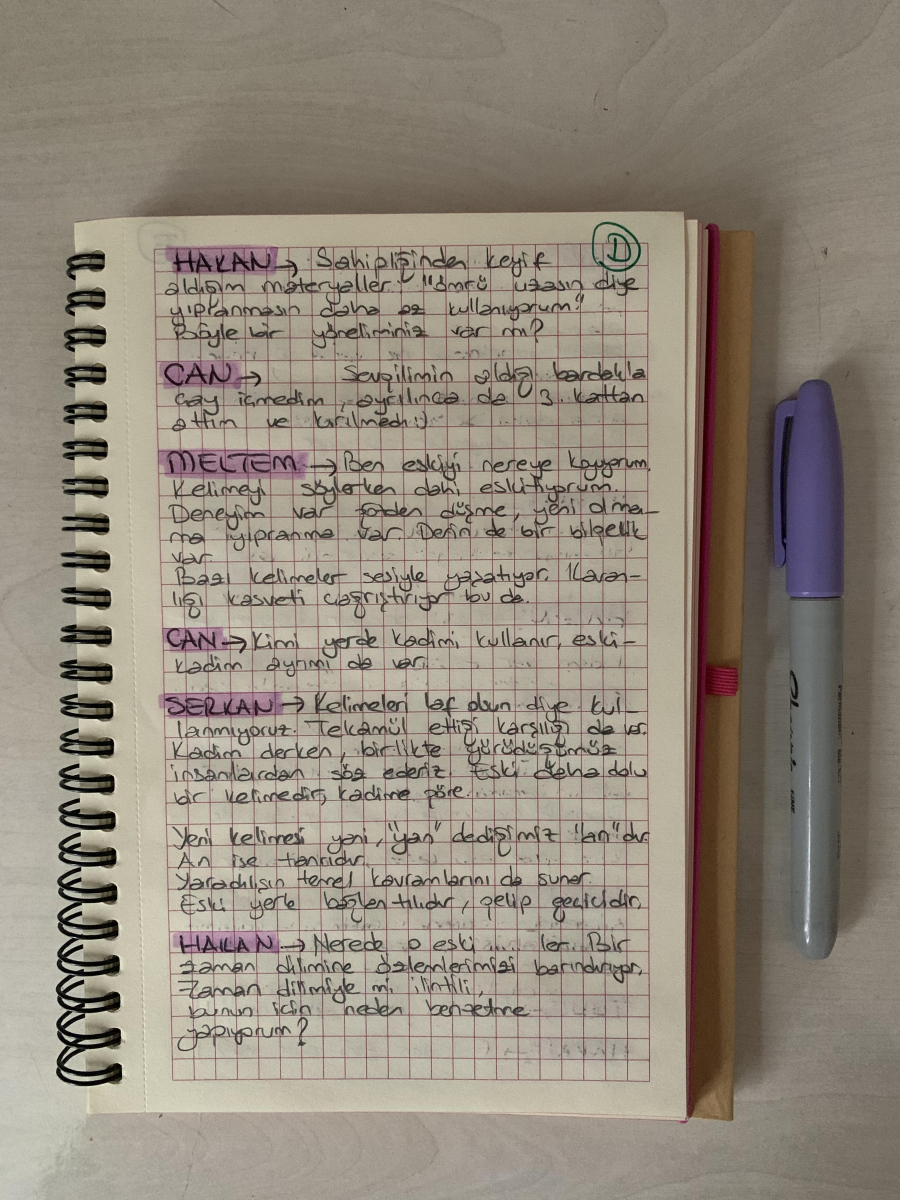 D
HAKAN → Sahipliğinden keyif
aldığım materyaller "ömrü uzasın diye
yıpranmasın daha az kullanıyorum"
Böyle bir yöneliminiz var mı?
CAN → Sevgilimin aldığı bardakla
çay içmedim, ayrılınca da 3. kattan
attım ve kırılmadı :)
MELTEM → Ben eskiyi nereye koyuyorum.
Kelimeyi söylerken dahi eskitiyorum.
Deneyim var gözden düşme, yeni olma-
ma yıpranma var. Derin de bir bilgelik
var.
Bazı kelimeler sesiyle yaşatıyor. Karan-
lığı kasveti çağrıştırıyor bu da.
CAN → Kimi yerde kadimi, kullanır, eski-
kadim ayrımı da var.
SERKAN → Kelimeleri laf olsun diye kul-
lanmıyoruz. Tekamül ettiği karşılığı da var.
Kadim derken, birlikte yürüdüğümüz
insanlardan söz ederiz. Eski daha dolu
bir kelimedir, kadime göre.
Yeni kelimesi yani, "yan" dediğimiz "an"dır.
An ise tanrıdır.
Yaradılışın temel kavramlarını da sunar.
Eski yerle bağlantılıdır, gelip geçicidir.
HAKAN → Nerede o eski .... ler. Bir
zaman dilimine özlemlerimizi barındırıyor,
Zaman dilimiyle mi ilintili,
bunun için neden benzetme
yapıyorum?
Sharpie